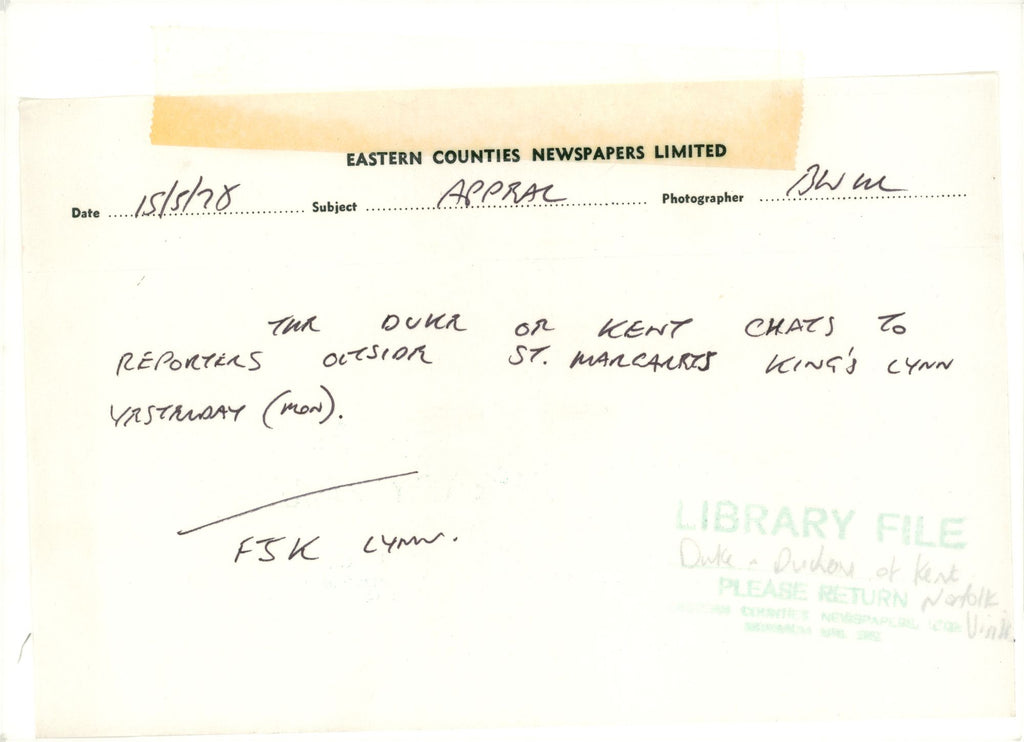 EASTERN COUNTIES NEWSPAPERS LIMITED
Date 15/5/78 Subject APPEAL Photographer
THE DUKE OF KENT CHATS TO
REPORTERS OUTSIDE ST. MARGARETS KING'S LYNN
YESTERDAY (MON).
FJK LYNN.
LIBRARY FILE
Duke & Duchess of Kent
PLEASE RETURN Norfolk
EASTERN COUNTIES NEWSPAPERS,